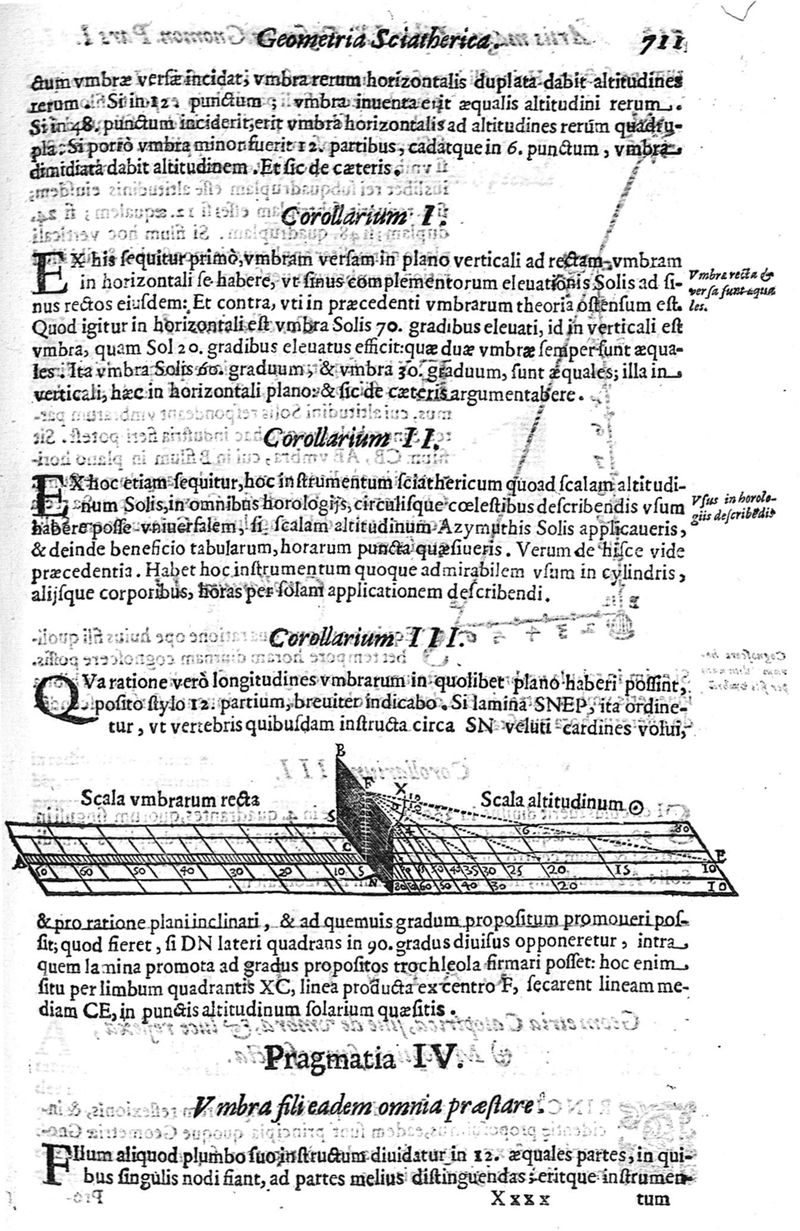 Geometria Sciatherica. 711
ctum vmbræ versæ incidat; vmbra rerum horizontalis duplata dabit altitudines
rerum. Si in 12. punctum; vmbra inuenta erit æqualis altitudini rerum.
Si in 48. punctum inciderit, erit vmbra horizontalis ad altitudines rerum quadru-
pla: Si porrò vmbra minor fuerit 12. partibus, cadatque in 6. punctum, vmbra
dimidiata dabit altitudinem. Et sic de cæteris.
Corollarium I.
EX his sequitur primò, vmbram versam in plano verticali ad rectam, vmbram
in horizontali se habere, vt sinus complementorum eleuationis Solis ad si-
nus rectos eiusdem: Et contra, vti in præcedenti vmbrarum theoria ostensum est.
Quod igitur in horizontali est vmbra Solis 70. gradibus eleuati, id in verticali est
vmbra, quam Sol 20. gradibus eleuatus efficit: quæ duæ vmbræ semper sunt æqua-
les. Ita vmbra Solis 60. graduum, & vmbra 30. graduum, sunt æquales; illa in
verticali, hæc in horizontali plano: & sic de cæteris argumentabere.
Vmbra recta &
versa sunt æqua
les.
Corollarium II.
EX hoc etiam sequitur, hoc instrumentum sciathericum quoad scalam altitudi-
num Solis, in omnibus horologijs, circulisque cœlestibus describendis vsum
habere posse vniuersalem, si scalam altitudinum Azymuthis Solis applicaueris,
& deinde beneficio tabularum, horarum puncta quæsiueris. Verum de hisce vide
præcedentia. Habet hoc instrumentum quoque admirabilem vsum in cylindris,
alijsque corporibus, horas per solam applicationem describendi.
Vsus in horolo-
giis describēdis
Corollarium III.
QVa ratione verò longitudines vmbrarum in quolibet plano haberi possint,
posito stylo 12. partium, breuiter indicabo. Si lamina SNEP, ita ordine-
tur, vt vertebris quibusdam instructa circa SN veluti cardines volui,
B
F X
Scala vmbrarum recta
Scala altitudinum ☉
S
A C E
N
60 50 40 30 20 10 5
50 40 35 30 25 20 15 10
30 20 10
& pro ratione plani inclinari, & ad quemuis gradum propositum promoueri pos-
sit; quod fieret, si DN lateri quadrans in 90. gradus diuisus opponeretur, intra
quem lamina promota ad gradus propositos trochleola firmari posset: hoc enim
situ per limbum quadrantis XC, linea producta ex centro F, secarent lineam me-
diam CE, in punctis altitudinum solarium quæsitis.
Pragmatia IV.
Vmbra fili eadem omnia præstare.
FIlum aliquod plumbo suo instructum diuidatur in 12. æquales partes, in qui-
bus singulis nodi fiant, ad partes melius distinguendas; eritque instrumen-
Xxxx tum